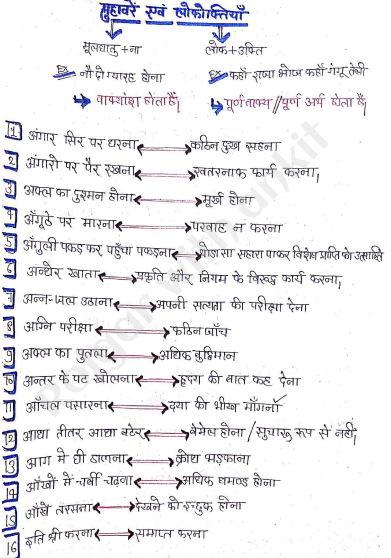 मुहावरें एवं लोकोक्तियाँ
मूलधातु + ना लोक + उक्ति
Ex नौ दो ग्यारह होना Ex कहाँ राजा भोज कहाँ गंगू तेली
वाक्यांश होता है। पूर्ण वाक्य // पूर्ण अर्थ होता है।
1 अंगार सिर पर धरना कठिन दुख सहना
2 अंगारो पर पैर रखना खतरनाक कार्य करना।
3 अक्ल का दुश्मन होना मूर्ख होना
4 अँगूठे पर मारना परवाह न करना
5 अँगुली पकड़ कर पहुँचा पकड़ना थोडा सा सहारा पाकर विशेष प्राप्ति को
6 अन्धेर खाता प्रकृति और नियम के विरूद्ध कार्य करना।
7 अन्न-जल उठाना अपनी सत्यता की परीक्षा देना
8 अग्नि परीक्षा कठिन जाँच
9 अक्ल का पुतला अधिक बुद्धिमान
10 अन्तर के पट खोलना हृदय की बात कह देना
11 आँचल पसारना दया की भीख माँगना
12 आधा तीतर आधा बटेर बेमेल होना / सुचारू रूप से नहीं
13 आग में घी डालना क्रोध भड़काना
14 आँखों में चर्बी चढ़ना अधिक घमण्ड होना
15 आँखे तरसना देखने को इच्छुक होना
16 इति श्री करना समाप्त करना